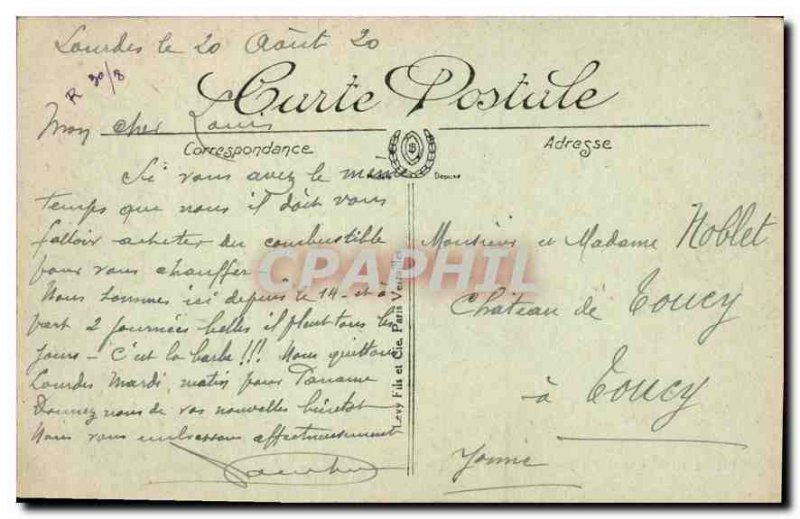 Lourdes le 20 Août 20
R 30/8
Carte Postale
Mon cher Louis
Correspondance
Adresse
Si vous avez le même
temps que nous il doit vous
falloir acheter du combustible
pour vous chauffer -
Nous sommes ici depuis le 14 - et à
part 2 journées belles il pleut tous les
jours - C'est la barbe !!! Nous quittons
Lourdes Mardi matin pour Paname
Donnez nous de vos nouvelles bientôt
Nous vous embrassons affectueusement
Monsieur et Madame Noblet
Château de Toucy
à Toucy
Yonne
Levy Fils et Cie, Paris Versailles
CPAPHIL